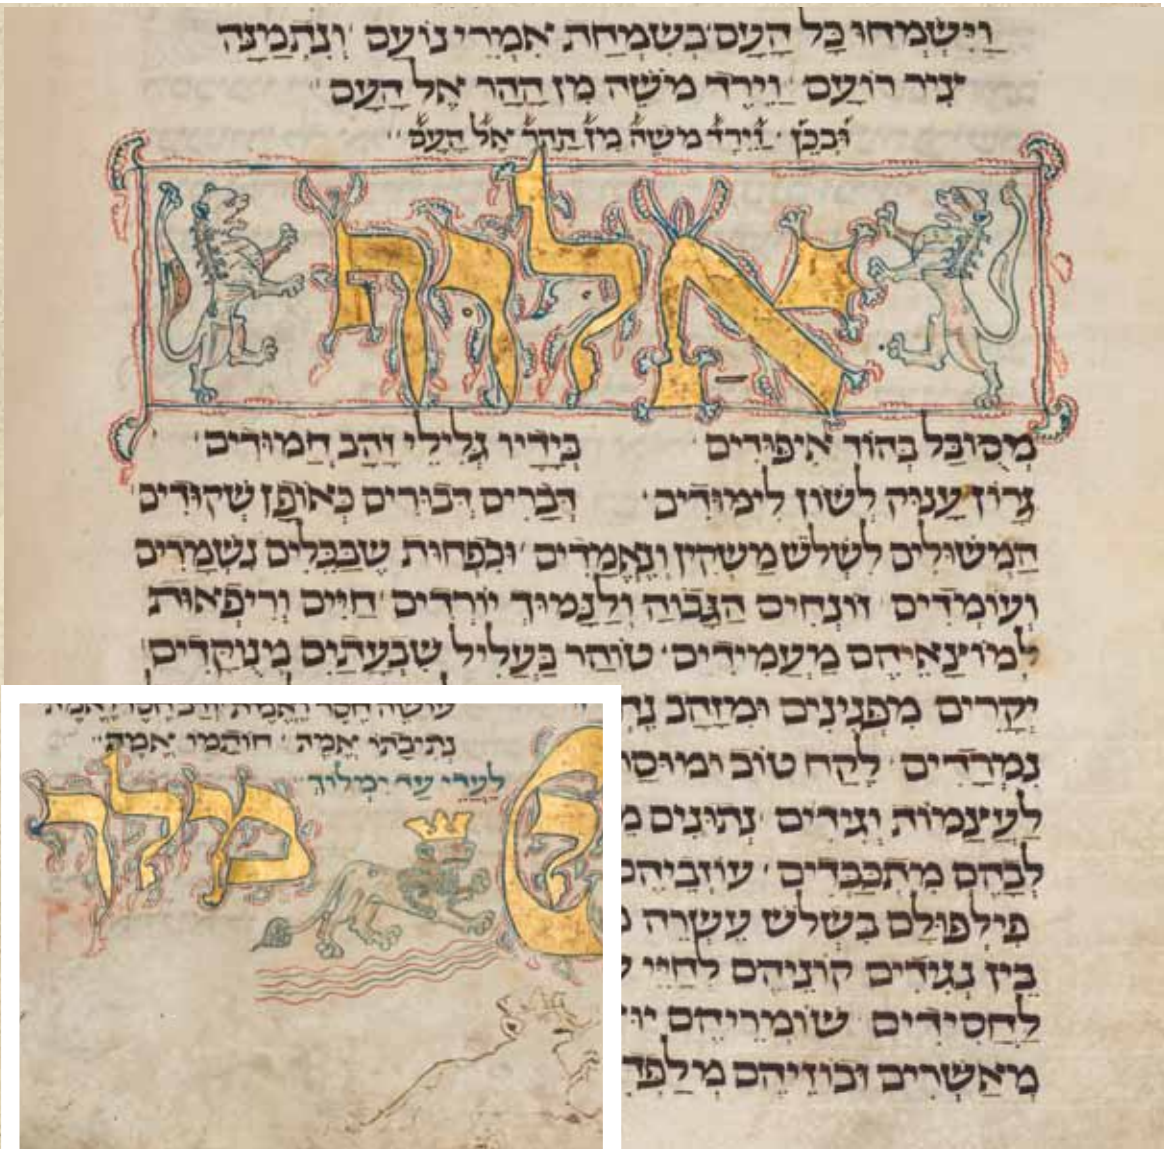 וַיִּשְׂמְחוּ כָּל הָעָם בְּשִׂמְחַת אִמְרֵי נוֹעַם וְנִתְמַנָּה
וַיֵּרֶד מֹשֶׁה מִן הָהָר אֶל הָעָם
וּבְכֵן וַיֵּרֶד מֹשֶׁה מִן הָהָר אֶל הָעָם
אלוף
מְסוּבָּל בְּהוֹד אִיפּוּדִים בְּיָדָיו גְּלִילֵי זָהָב חֲמוּדִים
גָּרוֹן עָנוּק לְשׁוֹן לִימוּדִים דְּבָרִים דְּבוּרִים כְּאוֹפָן שְׁקוּדִים
הַמְּשׁוּלִים לִשְׁלֹשׁ מַשְׁקִין וְנֶאֱמָדִים וּבִפְחוּת שֶׁבַּכֵּלִים נִשְׁמָרִים
וְעוֹמְדִים זוֹנְחִים הַגָּבוֹהַּ וְלַנָּמוּךְ יוֹרְדִים חַיִּים וְרִיפְאוּת
לְמוֹצָאֵיהֶם מַעֲמִידִים טוֹהַר בַּעֲלִיל שִׁבְעָתַיִם מְנוּקָּדִים
יְקָרִים מִפְּנִינִים וּמִזָּהָב
לֶקַח טוֹב וּמוּסָ
לַעֲצָמוֹת וְגִידִים נְתוּנִים מ
לִבָּהֶם מִתְכַּבְּדִים עוֹזְבֵיהֶם
פִּילְפּוּלָם בִּשְׁלֹשׁ עֶשְׂרֵה
בֵּין נְגִידִים קוֹנֵיהֶם לְחַיֵּי
לַחֲסִידִים שׁוֹמְרֵיהֶם
מְאַשְּׁרִים וּבוֹזֵיהֶם
עוֹשֶׂה חֶסֶד וֶאֱמֶת וְרַב חֶסֶד וֶאֱמֶת
נְתִיבָתוֹ אֱמֶת חוֹתָמוֹ אֱמֶת
לַעֲדֵי עַד יִמְלוֹךְ
מילך